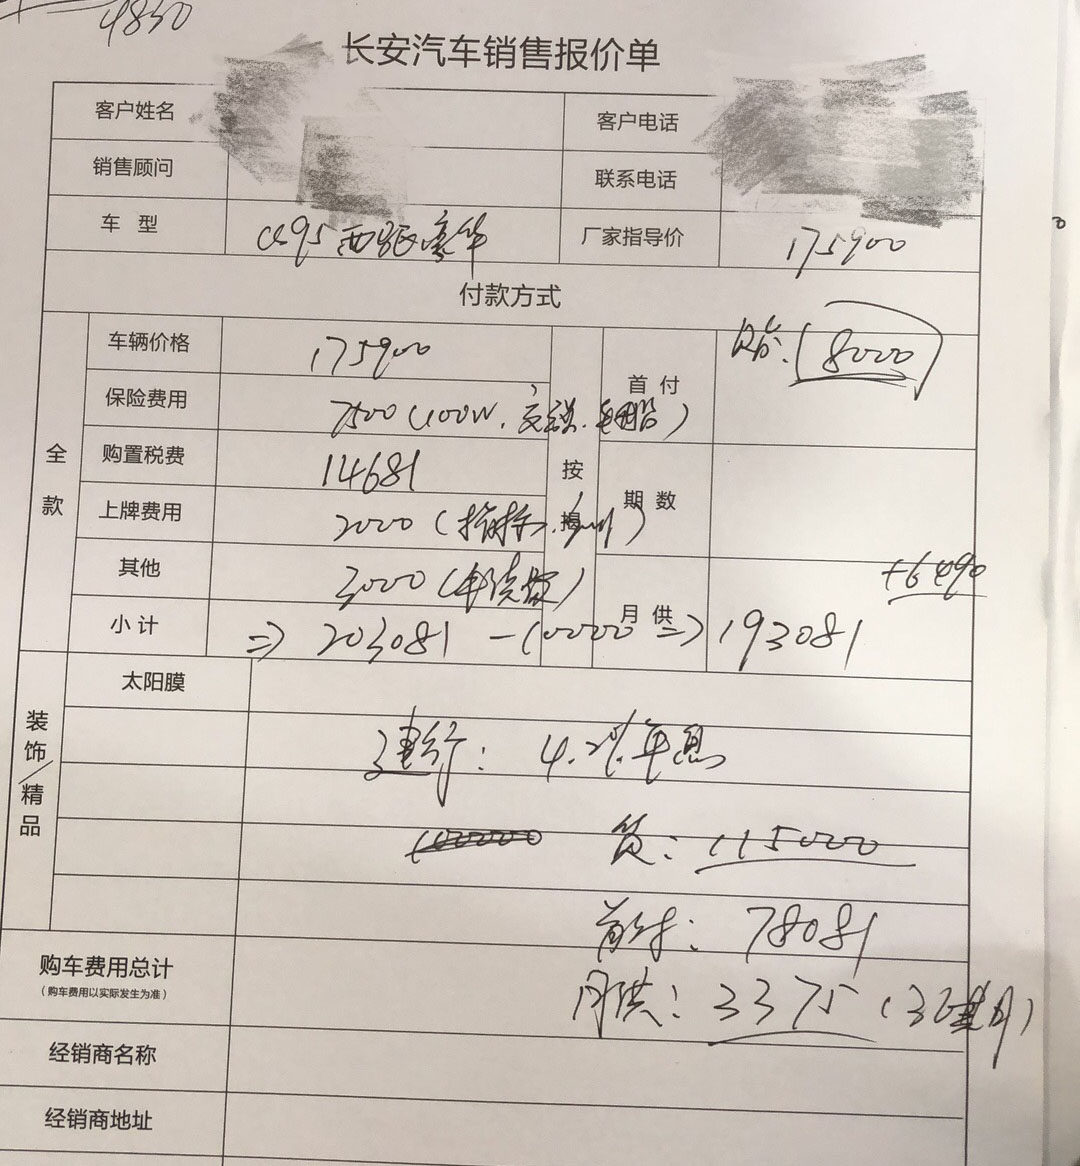 4830
长安汽车销售报价单
客户姓名 客户电话
销售顾问 联系电话
车 型 CS95 四驱豪华 厂家指导价 175900
付款方式
全款 车辆价格 175900 按揭 首 付 8000
保险费用 7500 (100W.
购置税费 14681 期 数
上牌费用 2000 (
其他 3000 ( 月 供 +6490
小 计 => 203081 -10000 => 193081
装饰/精品 太阳膜
建行: 4.2% 年息
贷: 115000
首付: 78081
购车费用总计
(购车费用以实际发生为准)
月供: 3375 (36个月)
经销商名称
经销商地址